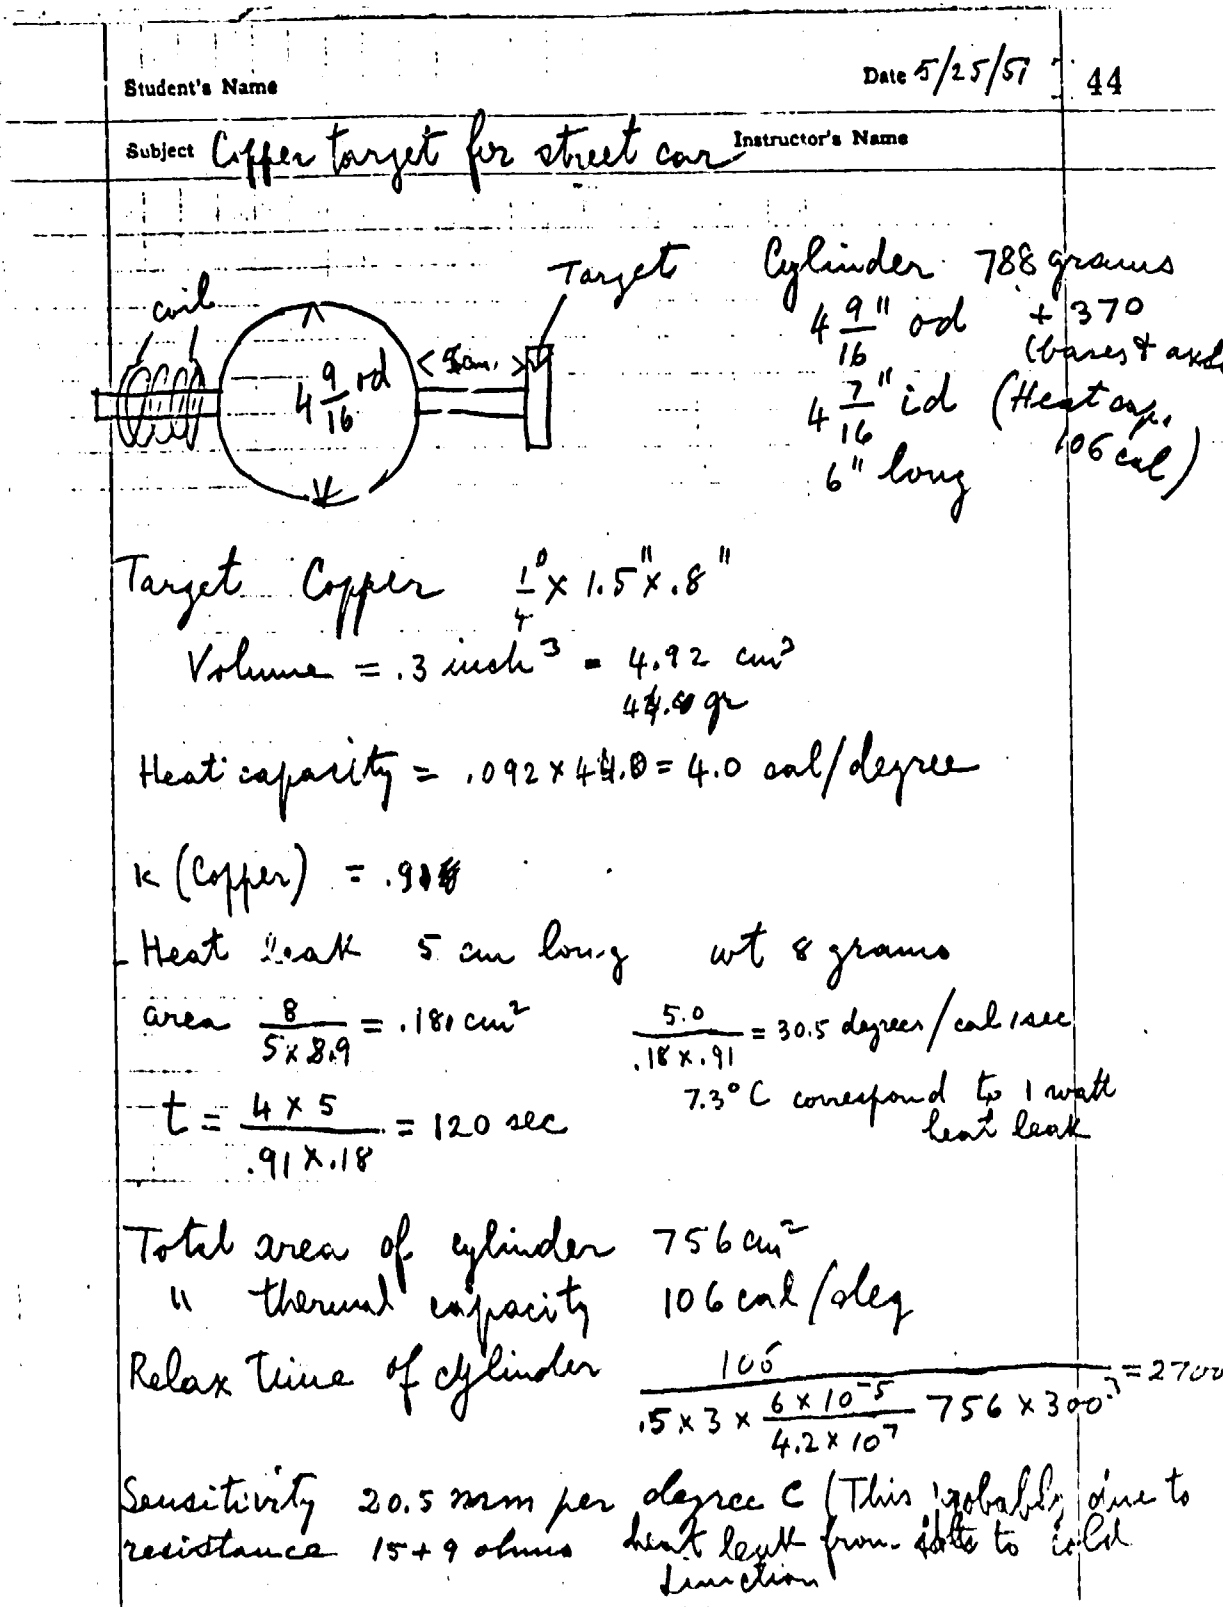 Student's Name
Date 5/25/51 44
Subject Copper target for street car Instructor's Name
coil
Target
4 9/16 od
< 5 cm. >
Cylinder 788 grams
4 9/16" od + 370
(bases & axle
4 7/16" id (Heat cap.
106 cal)
6" long
Target Copper 1/4" x 1.5" x .8"
Volume = .3 inch³ = 4.92 cm³
gr
Heat capacity = .092 x 44.0 = 4.0 cal/degree
k (Copper) = .91
Heat leak 5 cm long wt 8 grams
area 8 / 5 x 8.9 = .181 cm²
5.0 / .18 x .91 = 30.5 degrees/cal/sec
7.3° C correspond to 1 watt
heat leak
t = 4 x 5 / .91 x .18 = 120 sec
Total area of cylinder 756 cm²
" thermal capacity 106 cal/deg
Relax time of cylinder 106 / .5 x 3 x 6 x 10⁻⁵ / 4.2 x 10⁷ 756 x 300³ = 2700
Sensitivity 20.5 mm per degree C (This probably due to
resistance 15+9 ohms heat leak from to cold
junction